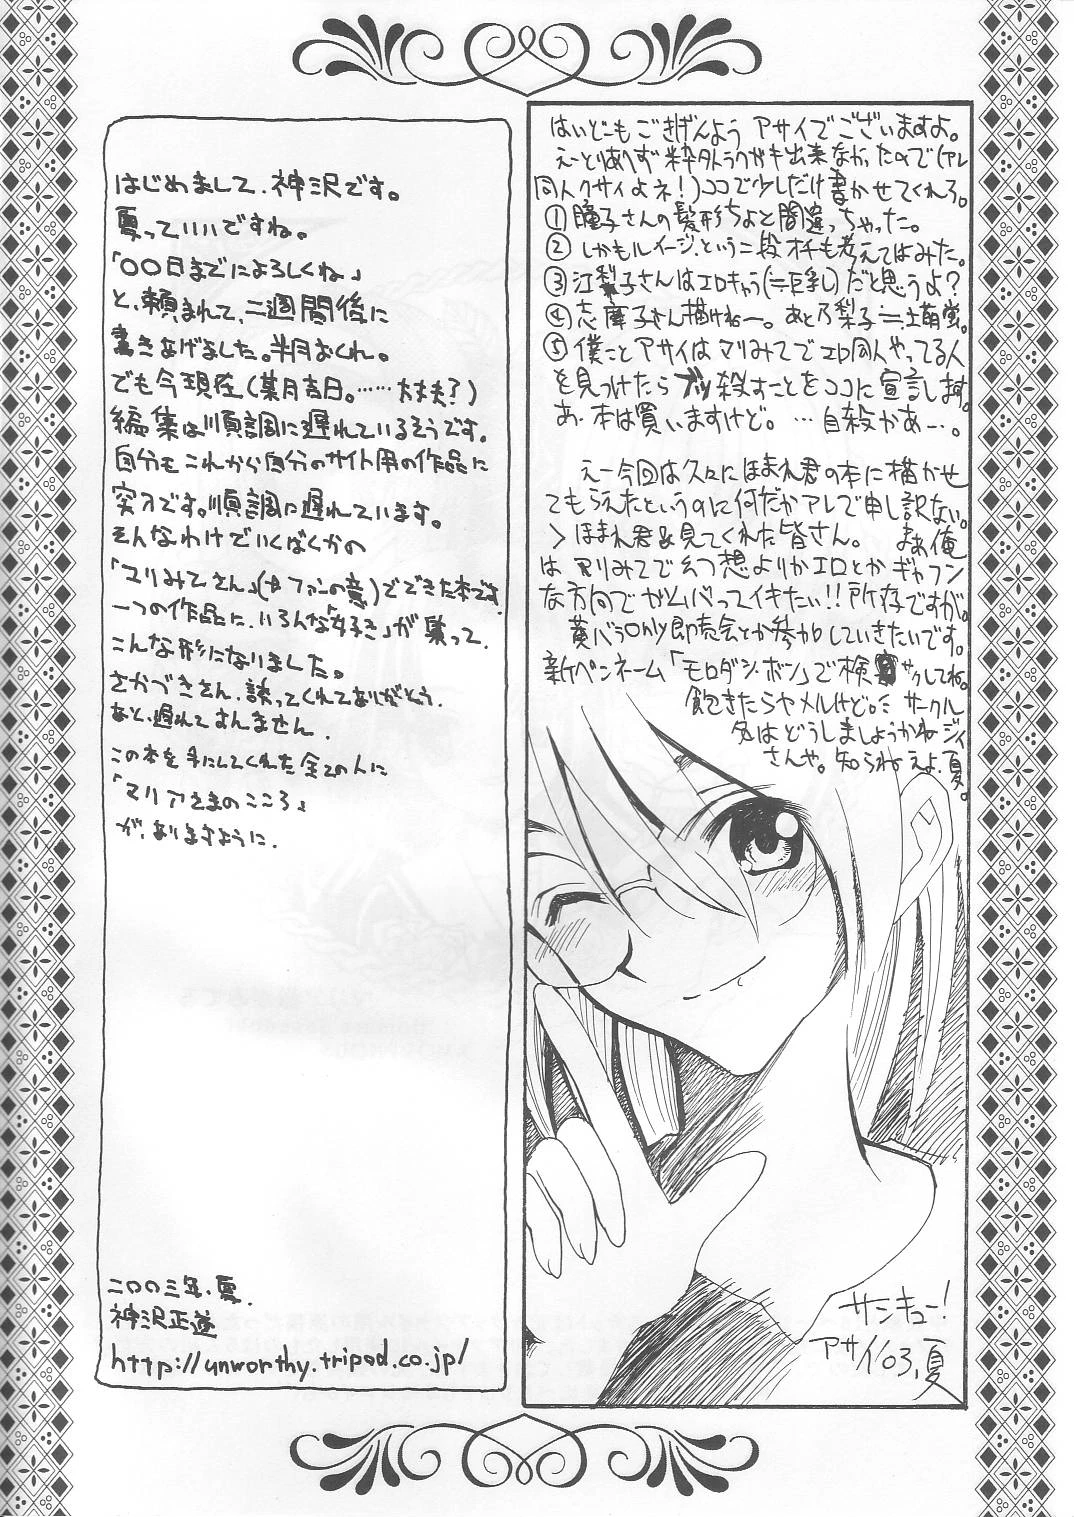 はいどーもごきげんよう アサイでございますよ。
えーとりあえず粋なトラクガキ出来なかったので(アレ
同人クサイよネ!)ココで少しだけ書かせてくれろ。
①瞳子さんの髪形ちょと間違っちゃった。
②しかもルイージ.という二段オチも考えてはみた。
③江梨子さんはエロキャラ(=巨乳)だと思うよ?
④志摩子さん描けねー。あと乃梨子≒土萌蛍。
⑤僕ことアサイはマリみてでエロ同人やってる人
を見つけたらブッ殺すことをココに宣言します。
あ、本は買いますけど。…自殺かあー。
えー今回は久々にほまれ君の本に描かせ
てもらえたというのに何だかアレで申し訳ない。
>ほまれ君&見てくれた皆さん。 まぁ俺
はマリみてで幻想よりかエロとかギャフン
な方向でガムバってイキたい!!所存ですが。
黄バラonly即売会とか参加していきたいです。
新ペンネーム「モロダシ・ボン」で検サクしてね。
飽きたらヤメルけど。ミ サークル
名はどうしましょうかねジィ
さんや。知らねえよ、夏。
サンキュー!
アサイ03,夏
はじめまして、神沢です。
夏っていいですね。
「〇〇日までによろしくね」
と、頼まれて、二週間後に
書きあげました。半月おくれ。
でも今現在(某月吉日。……大丈夫?)
編集は順調に遅れているそうです。
自分もこれから自分のサイト用の作品に
突入です。順調に遅れています。
そんなわけでいくばくかの
「マリみてさん」(≠ファンの意)でできた本です
一つの作品に、いろんな「好き」が集って、
こんな形になりました。
さかづきさん、誘ってくれてありがとう。
あと、遅れてすんません.
この本を手にしてくれた全ての人に
「マリアさまのこころ」
が、ありますように.
二〇〇三年、夏.
神沢正道
http://unworthy.tripod.co.jp/